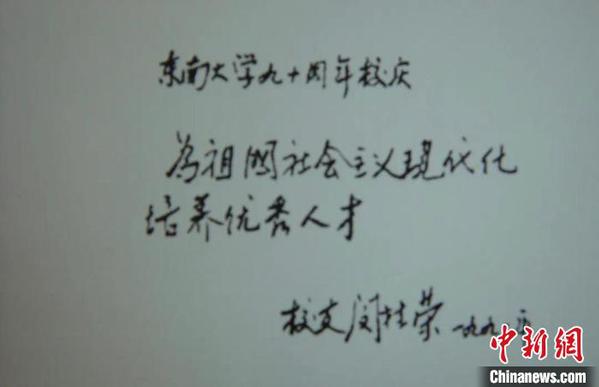 东南大学九十周年校庆
为祖国社会主义现代化
培养优秀人才
校友闵桂荣 一九九
中新网
Chinanews.com